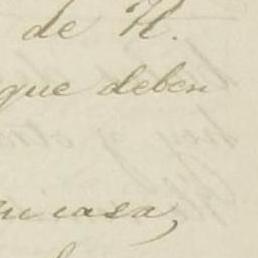 de N.
que deben
mi casa,